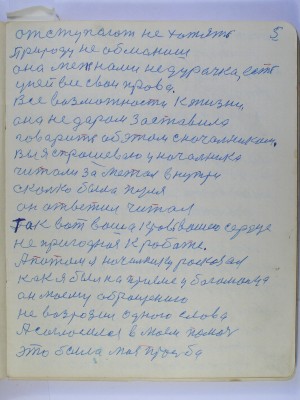 5
отступают не хотять
природу не обманиш
она меж нами не дурачка, есть
у неё вие свои права.
Все возможности к жизни
она не даром заставила
говорить об этом с начальником.
Вы з спрашеваю у начальника
читали за метал внутри
сколко была пуля
он ответил читал
Так вот ваша кров ваше сердце
не пригодная к работе.
А потом я начальнику росказал
как я был на приёме у
он моему обращению
не возрозил одного слова
А согласился в моем
это была моя прозба